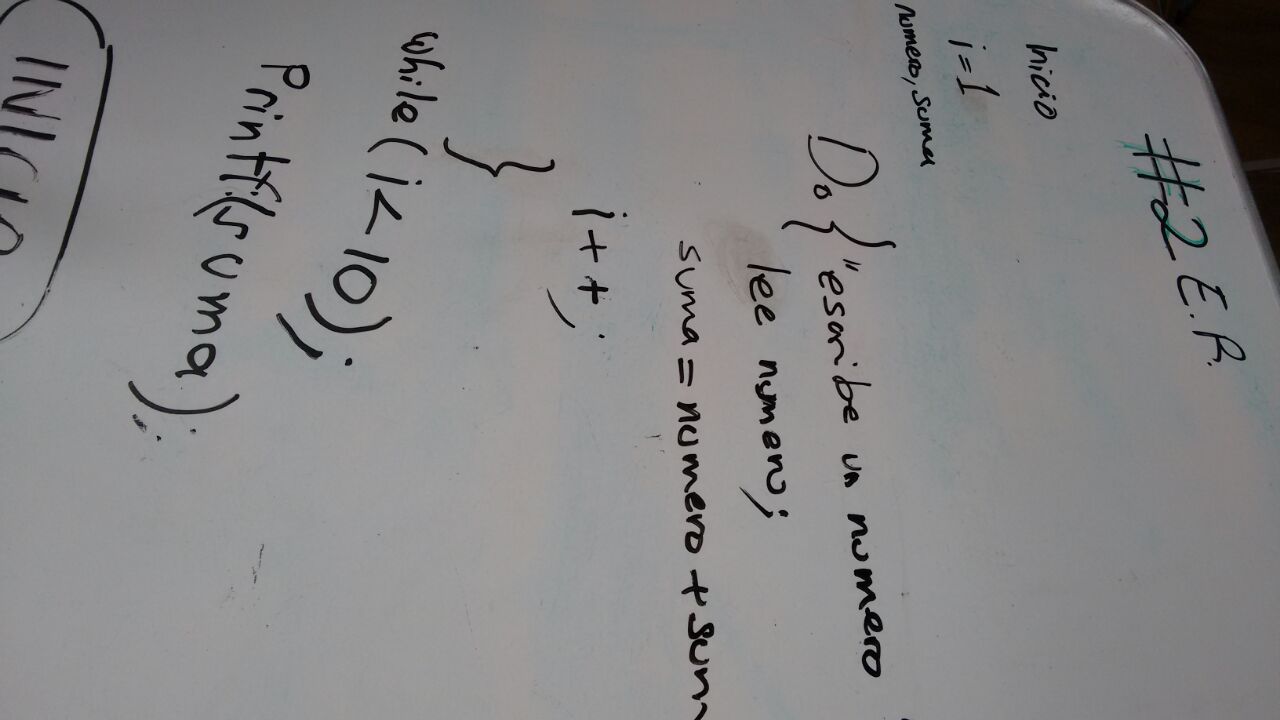 #2 E.R.
Inicio
i=1
numero, suma
Do { "escribe un numero
lee numero;
suma = numero + sum
i++;
}
while (i<10);
Printf(suma);
INICIO